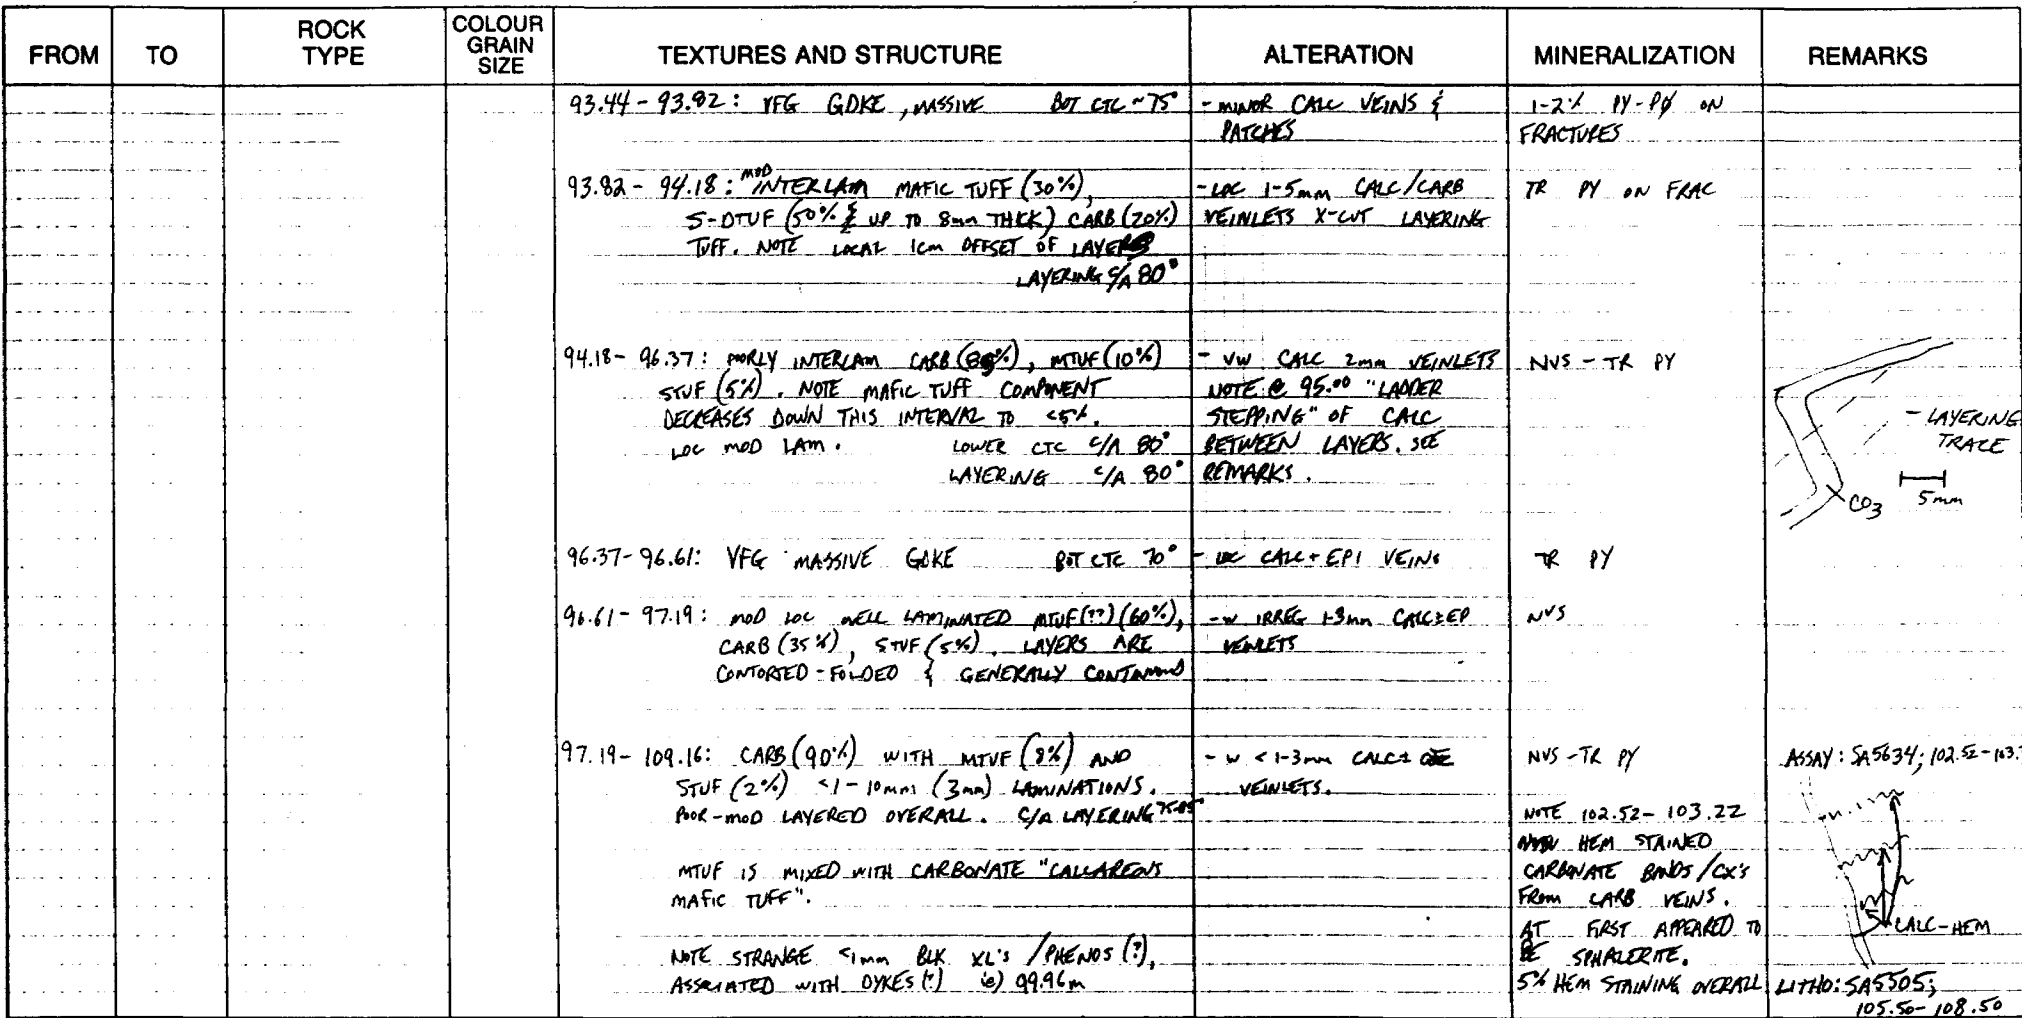 FROM TO ROCK TYPE COLOUR GRAIN SIZE TEXTURES AND STRUCTURE ALTERATION MINERALIZATION REMARKS
93.44-93.82: VFG GDKE, MASSIVE BOT CTC ~75°
- MINOR CALC VEINS &
PATCHES
1-2% PY-PØ ON
FRACTURES
93.82-94.18: MOD INTERLAM MAFIC TUFF (30%),
S-DTUF (50% & UP TO 8mm THICK) CARB (20%)
TUFF. NOTE LOCAL 1cm OFFSET OF LAYERS
LAYERING C/A 80°
- LOC 1-5mm CALC/CARB
VEINLETS X-CUT LAYERING
TR PY ON FRAC
94.18-96.37: POORLY INTERLAM CARB (85%), MTUF (10%)
STUF (5%). NOTE MAFIC TUFF COMPONENT
DECREASES DOWN THIS INTERVAL TO <5%.
LOC MOD LAM. LOWER CTC C/A 80°
LAYERING C/A 80°
- VW CALC 2mm VEINLETS
NOTE @ 95.00 "LADDER
STEPPING" OF CALC
BETWEEN LAYERS. SEE
REMARKS.
NVS - TR PY
- LAYERING
TRACE
CO3
5mm
96.37-96.61: VFG MASSIVE GDKE BOT CTC 70°
- LOC CALC + EPI VEINS
TR PY
96.61-97.19: MOD LOC WELL LAMINATED MTUF(??) (60%),
CARB (35%), STUF (5%). LAYERS ARE
CONTORTED-FOLDED & GENERALLY
- W IRREG 1-3mm CALC±EP
VEINLETS
NVS
97.19-109.16: CARB (90%) WITH MTUF (8%) AND
STUF (2%) <1-10mm (3mm) LAMINATIONS.
POOR-MOD LAYERED OVERALL. C/A LAYERING 75-85°
MTUF IS MIXED WITH CARBONATE "CALCAREOUS
MAFIC TUFF".
NOTE STRANGE <1mm BLK XL'S/PHENOS (?),
ASSOCIATED WITH DYKES (?) ie) 99.96m
- W <1-3mm CALC±
VEINLETS.
NVS-TR PY
NOTE 102.52-103.22
HEM STAINED
CARBONATE BANDS/CX'S
FROM CARB VEINS.
AT FIRST APPEARED TO
BE SPHALERITE.
5% HEM STAINING OVERALL
ASSAY: SA5634; 102.52-103.
CALC-HEM
LITHO: SA5505;
105.50-108.50